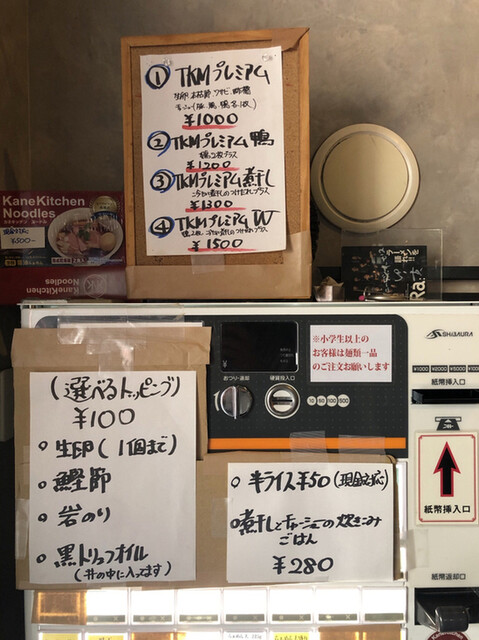 ① TKMプレミアム
¥1000
② TKMプレミアム鴨
鴨2枚プラス
¥1200
③ TKMプレミアム煮干し
¥1300
④ TKMプレミアムW
¥1500
KaneKitchen
Noodles
¥500-
KaneKitchen
Noodles
ラーメンを
Ra:
SHIBAURA
※小学生以上の
お客様は麺類一品
のご注文お願いします
おつり・返却
硬貨投入口
10 50 100 500
¥1000 ¥2000 ¥5000 ¥10000
紙幣挿入口
紙幣挿入口
紙幣返却口
(選べるトッピング)
¥100
○ 生卵(1個まで)
○ 鰹節
○ 岩のり
○ 黒トリュフオイル
(丼の中に入ってます)
○ 半ライス¥50(現金対応)
○ 煮干しとチャーシューの炊きこみ
ごはん
¥280